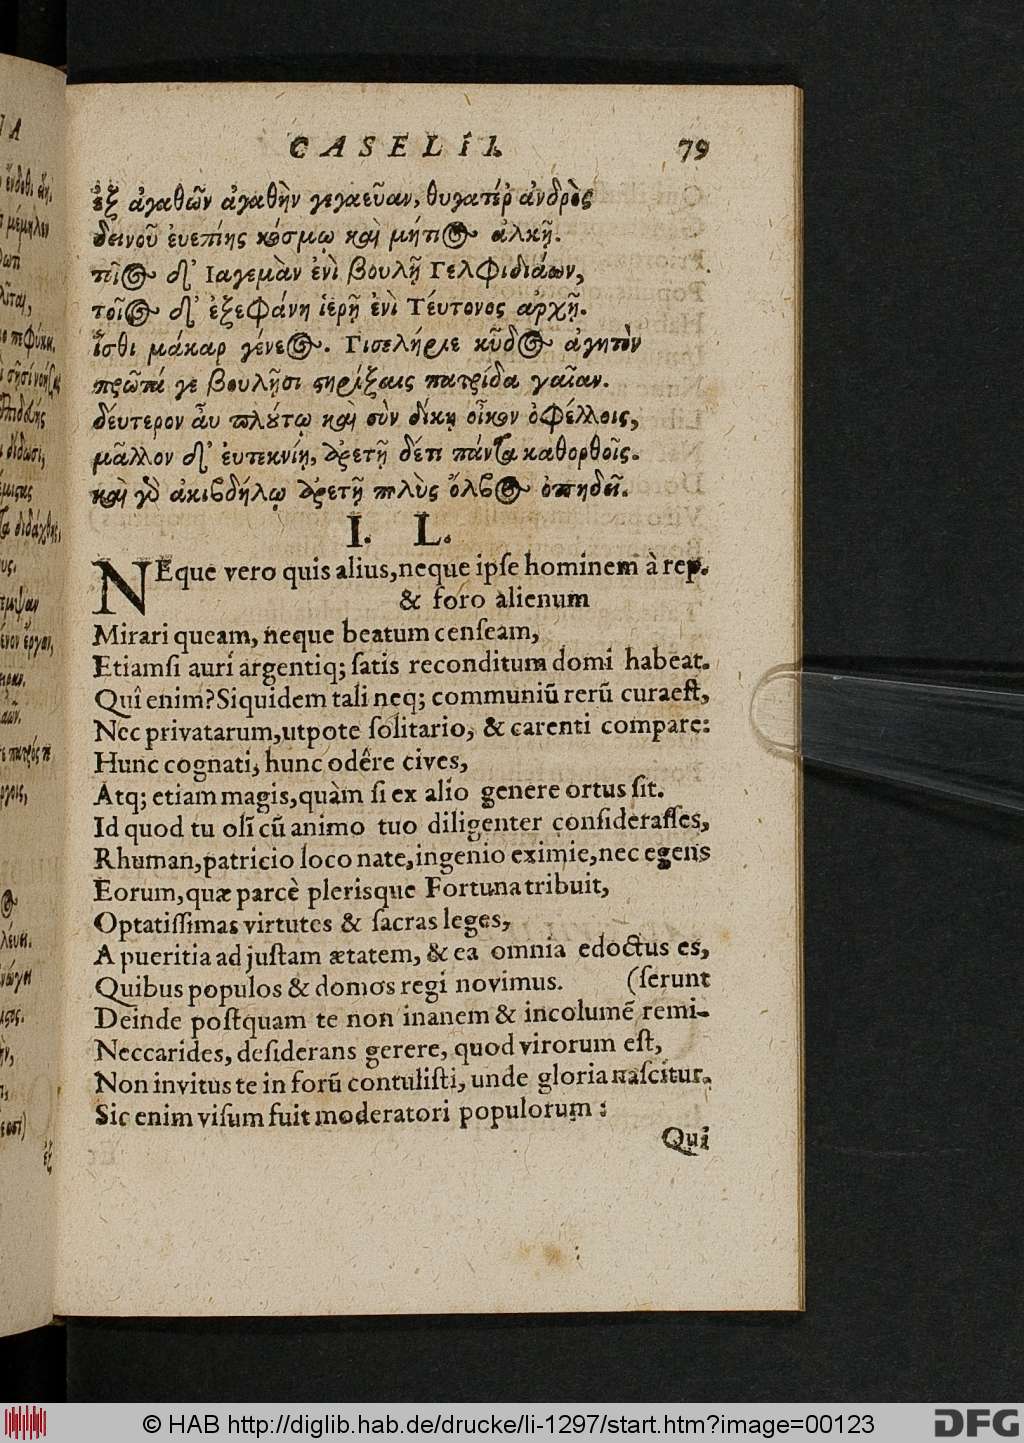 CASELII. 79
ἐξ ἀγαθῶν ἀγαθὴν γεγαεῦαν, θυγατέρ ἀνδρὸς
δεινοῦ ἐυεπίης κόσμῳ καὶ μήτιος ἀλκῇ.
δ' Ιαγεμὰν ἐνὶ βουλῇ Γελφιδιάων,
τοῖος δ' ἐξεφάνη ἱερῇ ἐνὶ Τέυτονος ἀρχῇ.
ἴσθι μάκαρ γένεος. Γισελήριε κῦδος ἀγητὸν
πρῶτά γε βουλῇσι στηρίξαις πατρίδα γαῖαν.
δέυτερον ἀυ πλούτῳ καὶ σὺν δίκῃ οἶκον ὀφέλλοις,
μᾶλλον δ' ἐυτεκνίῃ, ἀρετῇ δέτι πάντα καθορθοῖς.
καὶ γὸ ἀκιβδήλῳ ἀρετῇ πλὺς ὄλβος ὀπηδεῖ.
I. L.
NEque vero quis alius, neque ipſe hominem à rep.
& foro alienum
Mirari queam, neque beatum cenſeam,
Etiamsi auri argentiq; ſatis reconditum domi habeat.
Quî enim? Siquidem tali neq; communiũ rerũ curaeſt,
Nec privatarum, utpote ſolitario, & carenti compare:
Hunc cognati, hunc odêre cives,
Atq; etiam magis, quàm ſi ex alio genere ortus ſit.
Id quod tu olĩ cũ animo tuo diligenter conſideraſſes,
Rhuman, patricio loco nate, ingenio eximie, nec egens
Eorum, quæ parcè plerisque Fortuna tribuit,
Optatiſſimas virtutes & ſacras leges,
A pueritia ad juſtam ætatem, & ea omnia edoctus es,
Quibus populos & domos regi novimus. (ſerunt
Deinde poſtquam te non inanem & incolumẽ remi-
Neccarides, deſiderans gerere, quod virorum eſt,
Non invitus te in forũ contuliſti, unde gloria naſcitur.
Sic enim viſum fuit moderatori populorum:
Qui
© HAB http://diglib.hab.de/drucke/li-1297/start.htm?image=00123
DFG